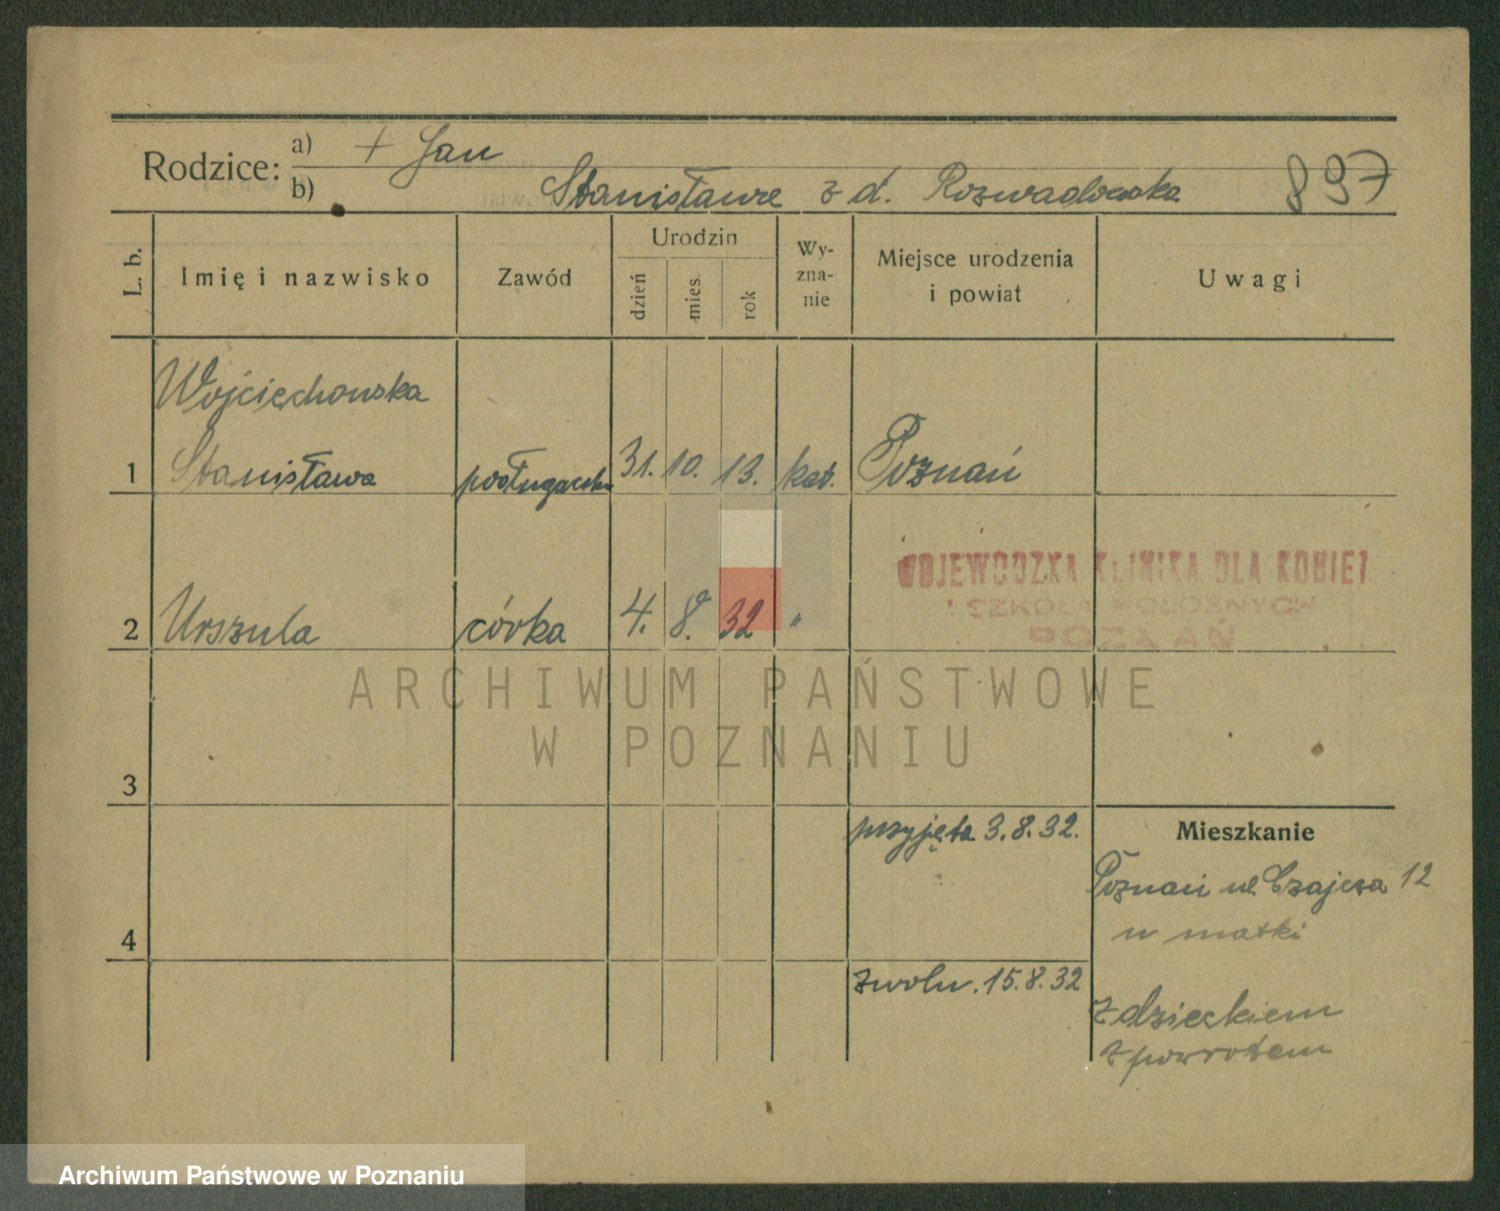 Rodzice:
a) + Jan
b) Stanisława z d. Rozwadowska
897
L. b.
Imię i nazwisko
Zawód
Urodzin
dzień
mies.
rok
Wy-
zna-
nie
Miejsce urodzenia
i powiat
Uwagi
Wojciechowska
1 Stanisława posługaczka 31. 10. 13. kat. Poznań
WOJEWÓDZKA KLINIKA DLA KOBIET
I SZKOŁA POŁOŻNYCH
POZNAŃ
2 Urszula córka 4. 8. 32 "
ARCHIWUM PAŃSTWOWE
W POZNANIU
3
przyjęta 3.8.32.
Mieszkanie
Poznań ul. Czajcza 12
u matki
4
zwoln. 15.8.32
z dzieckiem
z powrotem
Archiwum Państwowe w Poznaniu